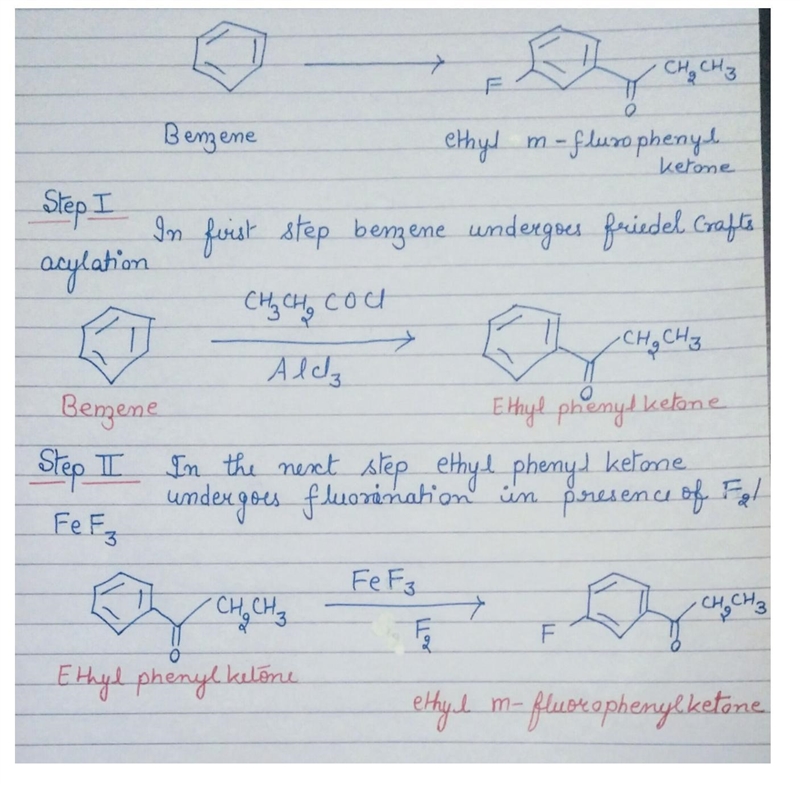 CH2CH3
F
O
Benzene
ethyl m-flurophenyl
ketone
Step I
In first step benzene undergoes friedel Crafts
acylation
CH3CH2COCl
CH2CH3
AlCl3
O
Benzene
Ethyl phenyl ketone
Step II In the next step ethyl phenyl ketone
undergoes fluorination in presence of F2/
FeF3
FeF3
CH2CH3
CH2CH3
F2
F
O
O
Ethyl phenyl ketone
ethyl m-fluorophenyl ketone